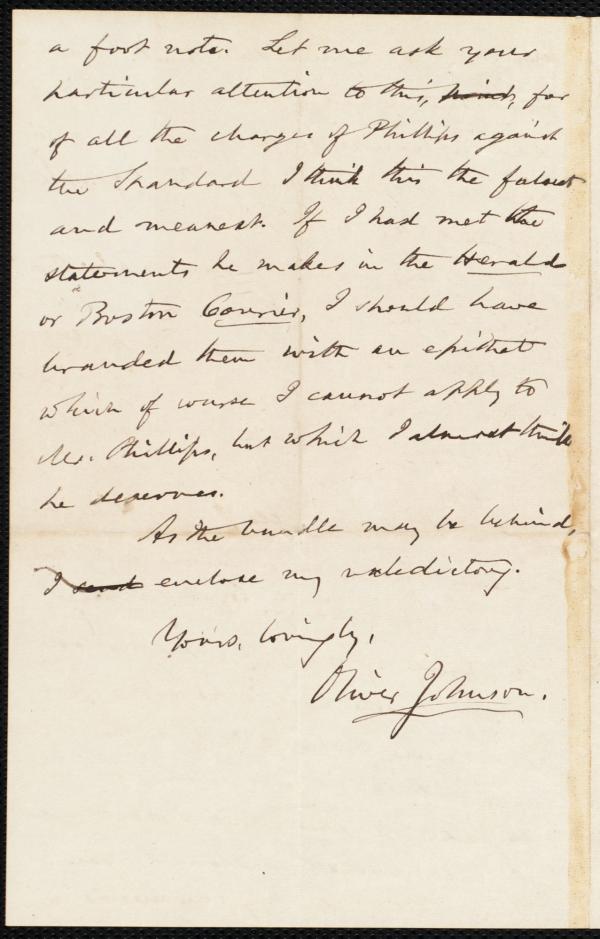 a foot note. Let me ask your
particular attention to this, point, for
of all the charges of Phillips against
the Standard I think this the falsest
and meanest. If I had met the
statements he makes in the Herald
or Boston Courier, I should have
branded them with an epithet
which of course I cannot apply to
Mr. Phillips, but which I almost think
he deserves.
As the bundle may be behind,
I send enclose my valedictory.
Yours, lovingly,
Oliver Johnson.